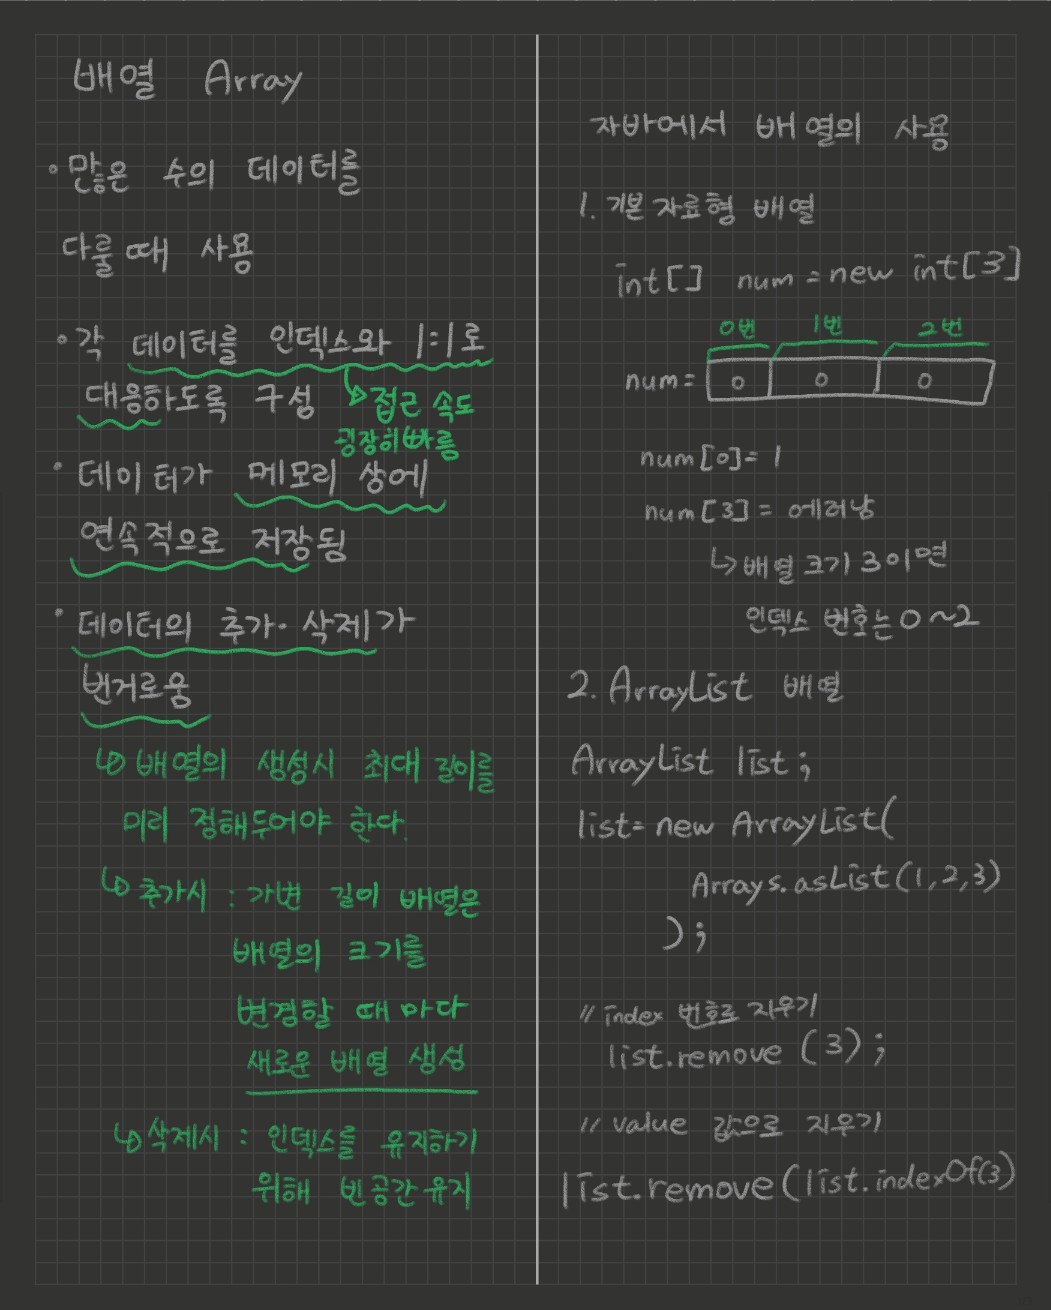 배열 Array
• 많은 수의 데이터를
다룰 때 사용
• 각 데이터를 인덱스와 1:1로
대응하도록 구성
↳ 접근 속도
굉장히 빠름
• 데이터가 메모리 상에
연속적으로 저장됨
• 데이터의 추가·삭제가
번거로움
↳ 배열의 생성시 최대 길이를
미리 정해두어야 한다.
↳ 추가시 : 가변 길이 배열은
배열의 크기를
변경할 때 마다
새로운 배열 생성
↳ 삭제시 : 인덱스를 유지하기
위해 빈공간 유지
자바에서 배열의 사용
1. 기본 자료형 배열
int[] num = new int[3]
0번 1번 2번
num= 0 0 0
num[0]= 1
num[3] = 에러남
↳ 배열 크기 3이면
인덱스 번호는 0~2
2. ArrayList 배열
ArrayList list;
list= new ArrayList(
Arrays.asList(1,2,3)
);
// index 번호로 지우기
list.remove (3);
// value 값으로 지우기
list.remove(list.indexOf(3)